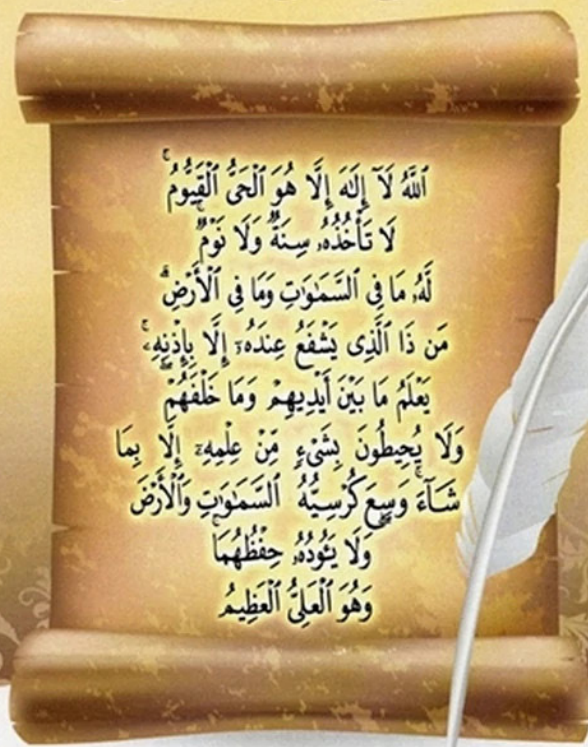 ٱللَّهُ لَآ إِلَٰهَ إِلَّا هُوَ ٱلْحَىُّ ٱلْقَيُّومُ ۚ
لَا تَأْخُذُهُۥ سِنَةٌ وَلَا نَوْمٌ ۚ
لَهُۥ مَا فِى ٱلسَّمَٰوَٰتِ وَمَا فِى ٱلْأَرْضِ ۗ
مَن ذَا ٱلَّذِى يَشْفَعُ عِندَهُۥٓ إِلَّا بِإِذْنِهِۦ ۚ
يَعْلَمُ مَا بَيْنَ أَيْدِيهِمْ وَمَا خَلْفَهُمْ ۖ
وَلَا يُحِيطُونَ بِشَىْءٍ مِّنْ عِلْمِهِۦٓ إِلَّا بِمَا
شَآءَ ۚ وَسِعَ كُرْسِيُّهُ ٱلسَّمَٰوَٰتِ وَٱلْأَرْضَ ۖ
وَلَا يَـُٔودُهُۥ حِفْظُهُمَا ۚ
وَهُوَ ٱلْعَلِىُّ ٱلْعَظِيمُ